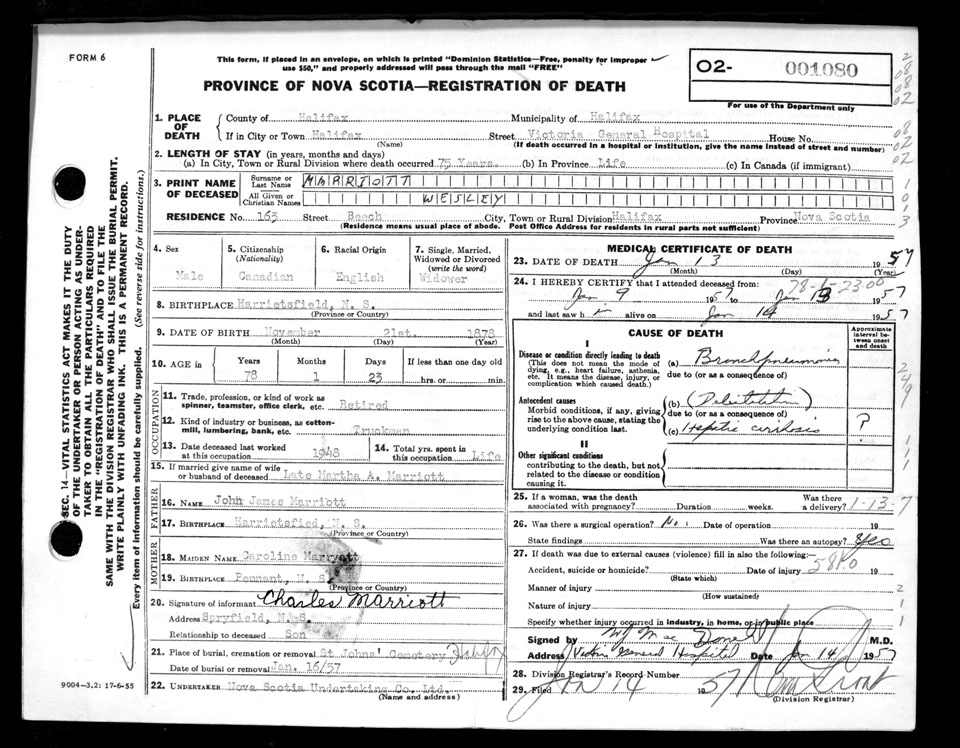 FORM 6
This form, if placed in an envelope, on which is printed "Dominion Statistics—Free, penalty for improper
use $50," and properly addressed will pass through the mail "FREE"
PROVINCE OF NOVA SCOTIA—REGISTRATION OF DEATH
O2- 001080
For use of the Department only
1. PLACE OF DEATH
County of Halifax Municipality of Halifax
If in City or Town Halifax Street Victoria General Hospital House No.
(Name) (If death occurred in a hospital or institution, give the name instead of street and number)
2. LENGTH OF STAY (in years, months and days)
(a) In City, Town or Rural Division where death occurred 75 Years. (b) In Province Life (c) In Canada (if immigrant)
3. PRINT NAME OF DECEASED
Surname or Last Name MARRIOTT
All Given or Christian Names WESLEY
RESIDENCE No. 163 Street Beech City, Town or Rural Division Halifax Province Nova Scotia
(Residence means usual place of abode. Post Office Address for residents in rural parts not sufficient)
4. Sex
Male
5. Citizenship
(Nationality)
Canadian
6. Racial Origin
English
7. Single, Married,
Widowed or Divorced
(write the word)
Widower
8. BIRTHPLACE Harrietsfield, N. S.
(Province or Country)
9. DATE OF BIRTH November 21st. 1878
(Month) (Day) (Year)
10. AGE in
Years Months Days If less than one day old
78 1 23 hrs. or min.
OCCUPATION
11. Trade, profession, or kind of work as
spinner, teamster, office clerk, etc. Retired
12. Kind of industry or business, as cotton-
mill, lumbering, bank, etc. Truckman
13. Date deceased last worked
at this occupation 1948
14. Total yrs. spent in
this occupation Life
15. If married give name of wife
or husband of deceased Late Martha A. Marriott
FATHER
16. NAME John James Marriott
17. BIRTHPLACE Harrietsfied, N. S.
(Province or Country)
MOTHER
18. MAIDEN NAME Caroline Marryatt
19. BIRTHPLACE Pennant, N. S.
(Province or Country)
20. Signature of informant Charles Marriott
Address Spryfield, N. S.
Relationship to deceased Son
21. Place of burial, cremation or removal St Johns' Cemetery
Date of burial or removal Jan. 16/57
22. UNDERTAKER Nova Scotia Undertaking Co. Ltd.
(Name and address)
MEDICAL CERTIFICATE OF DEATH
23. DATE OF DEATH Jan 13 1957
(Month) (Day) (Year)
78-1-23-00
24. I HEREBY CERTIFY that I attended deceased from:
Jan 9 1957 to Jan 13 1957
and last saw h im alive on Jan 14 1957
CAUSE OF DEATH
Approximate
interval be-
tween onset
and death
I
Disease or condition directly leading to death
(This does not mean the mode of
dying, e.g., heart failure, asthenia,
etc. It means the disease, injury, or
complication which caused death.)
(a) Bronchpneumonia
due to (or as a consequence of)
Antecedent causes
Morbid conditions, if any, giving
rise to the above cause, stating the
underlying condition last.
(b)
due to (or as a consequence of)
(c) Hepatic cirrhosis ?
II
Other significant conditions
contributing to the death, but not
related to the disease or condition
causing it.
25. If a woman, was the death
associated with pregnancy? Duration weeks.
Was there
a delivery?
1-13-7
26. Was there a surgical operation? No. Date of operation 19
State findings Was there an autopsy? Yes
27. If death was due to external causes (violence) fill in also the following:
Accident, suicide or homicide? Date of injury 19
(State which)
5810
Manner of injury
(How sustained)
Nature of injury
Specify whether injury occurred in industry, in home, or in public place
Signed by M.D.
Address Victoria General Hospital Date Jan 14 1957
28. Division Registrar's Record Number
29. Filed Jan 14 1957
(Division Registrar)
SEC. 14—VITAL STATISTICS ACT MAKES IT THE DUTY
OF THE UNDERTAKER OR PERSON ACTING AS UNDER-
TAKER TO OBTAIN ALL THE PARTICULARS REQUIRED
IN THE "REGISTRATION OF DEATH" AND TO FILE THE
SAME WITH THE DIVISION REGISTRAR WHO SHALL ISSUE THE BURIAL PERMIT.
WRITE PLAINLY WITH UNFADING INK. THIS IS A PERMANENT RECORD.
Every item of information should be carefully supplied. (See reverse side for instructions.)
9004—3.2: 17-6-55